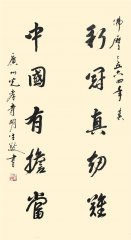 佛曆二五六四年春
新冠真幼雞
中國有擔當
廣州光孝寺明生敬書